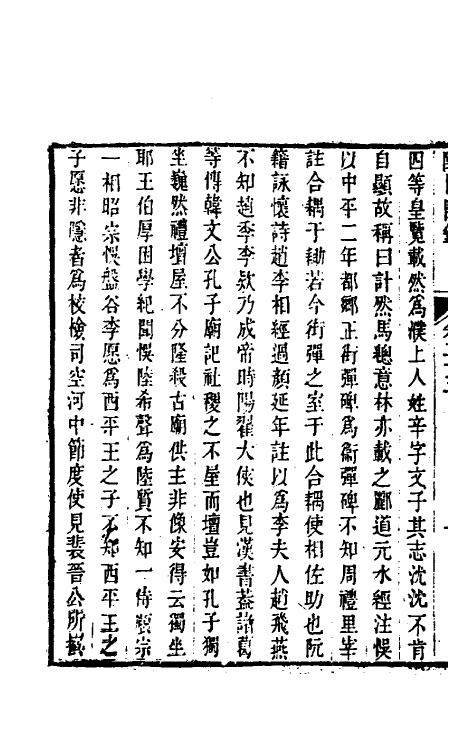 四等皇覽載然爲濮上人姓辛字文子其志沈沈不肯
自顯故稱曰計然馬總意林亦載之酈道元水經注悞
以中平二年都鄉正街彈碑爲衞彈碑不知周禮里宰
註合耦于耡若今街彈之室于此合耦使相佐助也阮
籍詠懷詩趙李相經過顏延年註以爲李夫人趙飛燕
不知趙季李欵乃成帝時陽翟大俠也見漢書蓋諸葛
等傳韓文公孔子廟記社稷之不屋而壇豈如孔子獨
坐巍然禮壇屋不分隆殺古廟供主非像安得云獨坐
耶王伯厚困學紀聞悞陸希聲爲陸贄不知一侍德宗
一相昭宗悞盤谷李愿爲西平王之子不知西平王之
子愿非隱者爲校檢司空河中節度使見裴晉公所撰